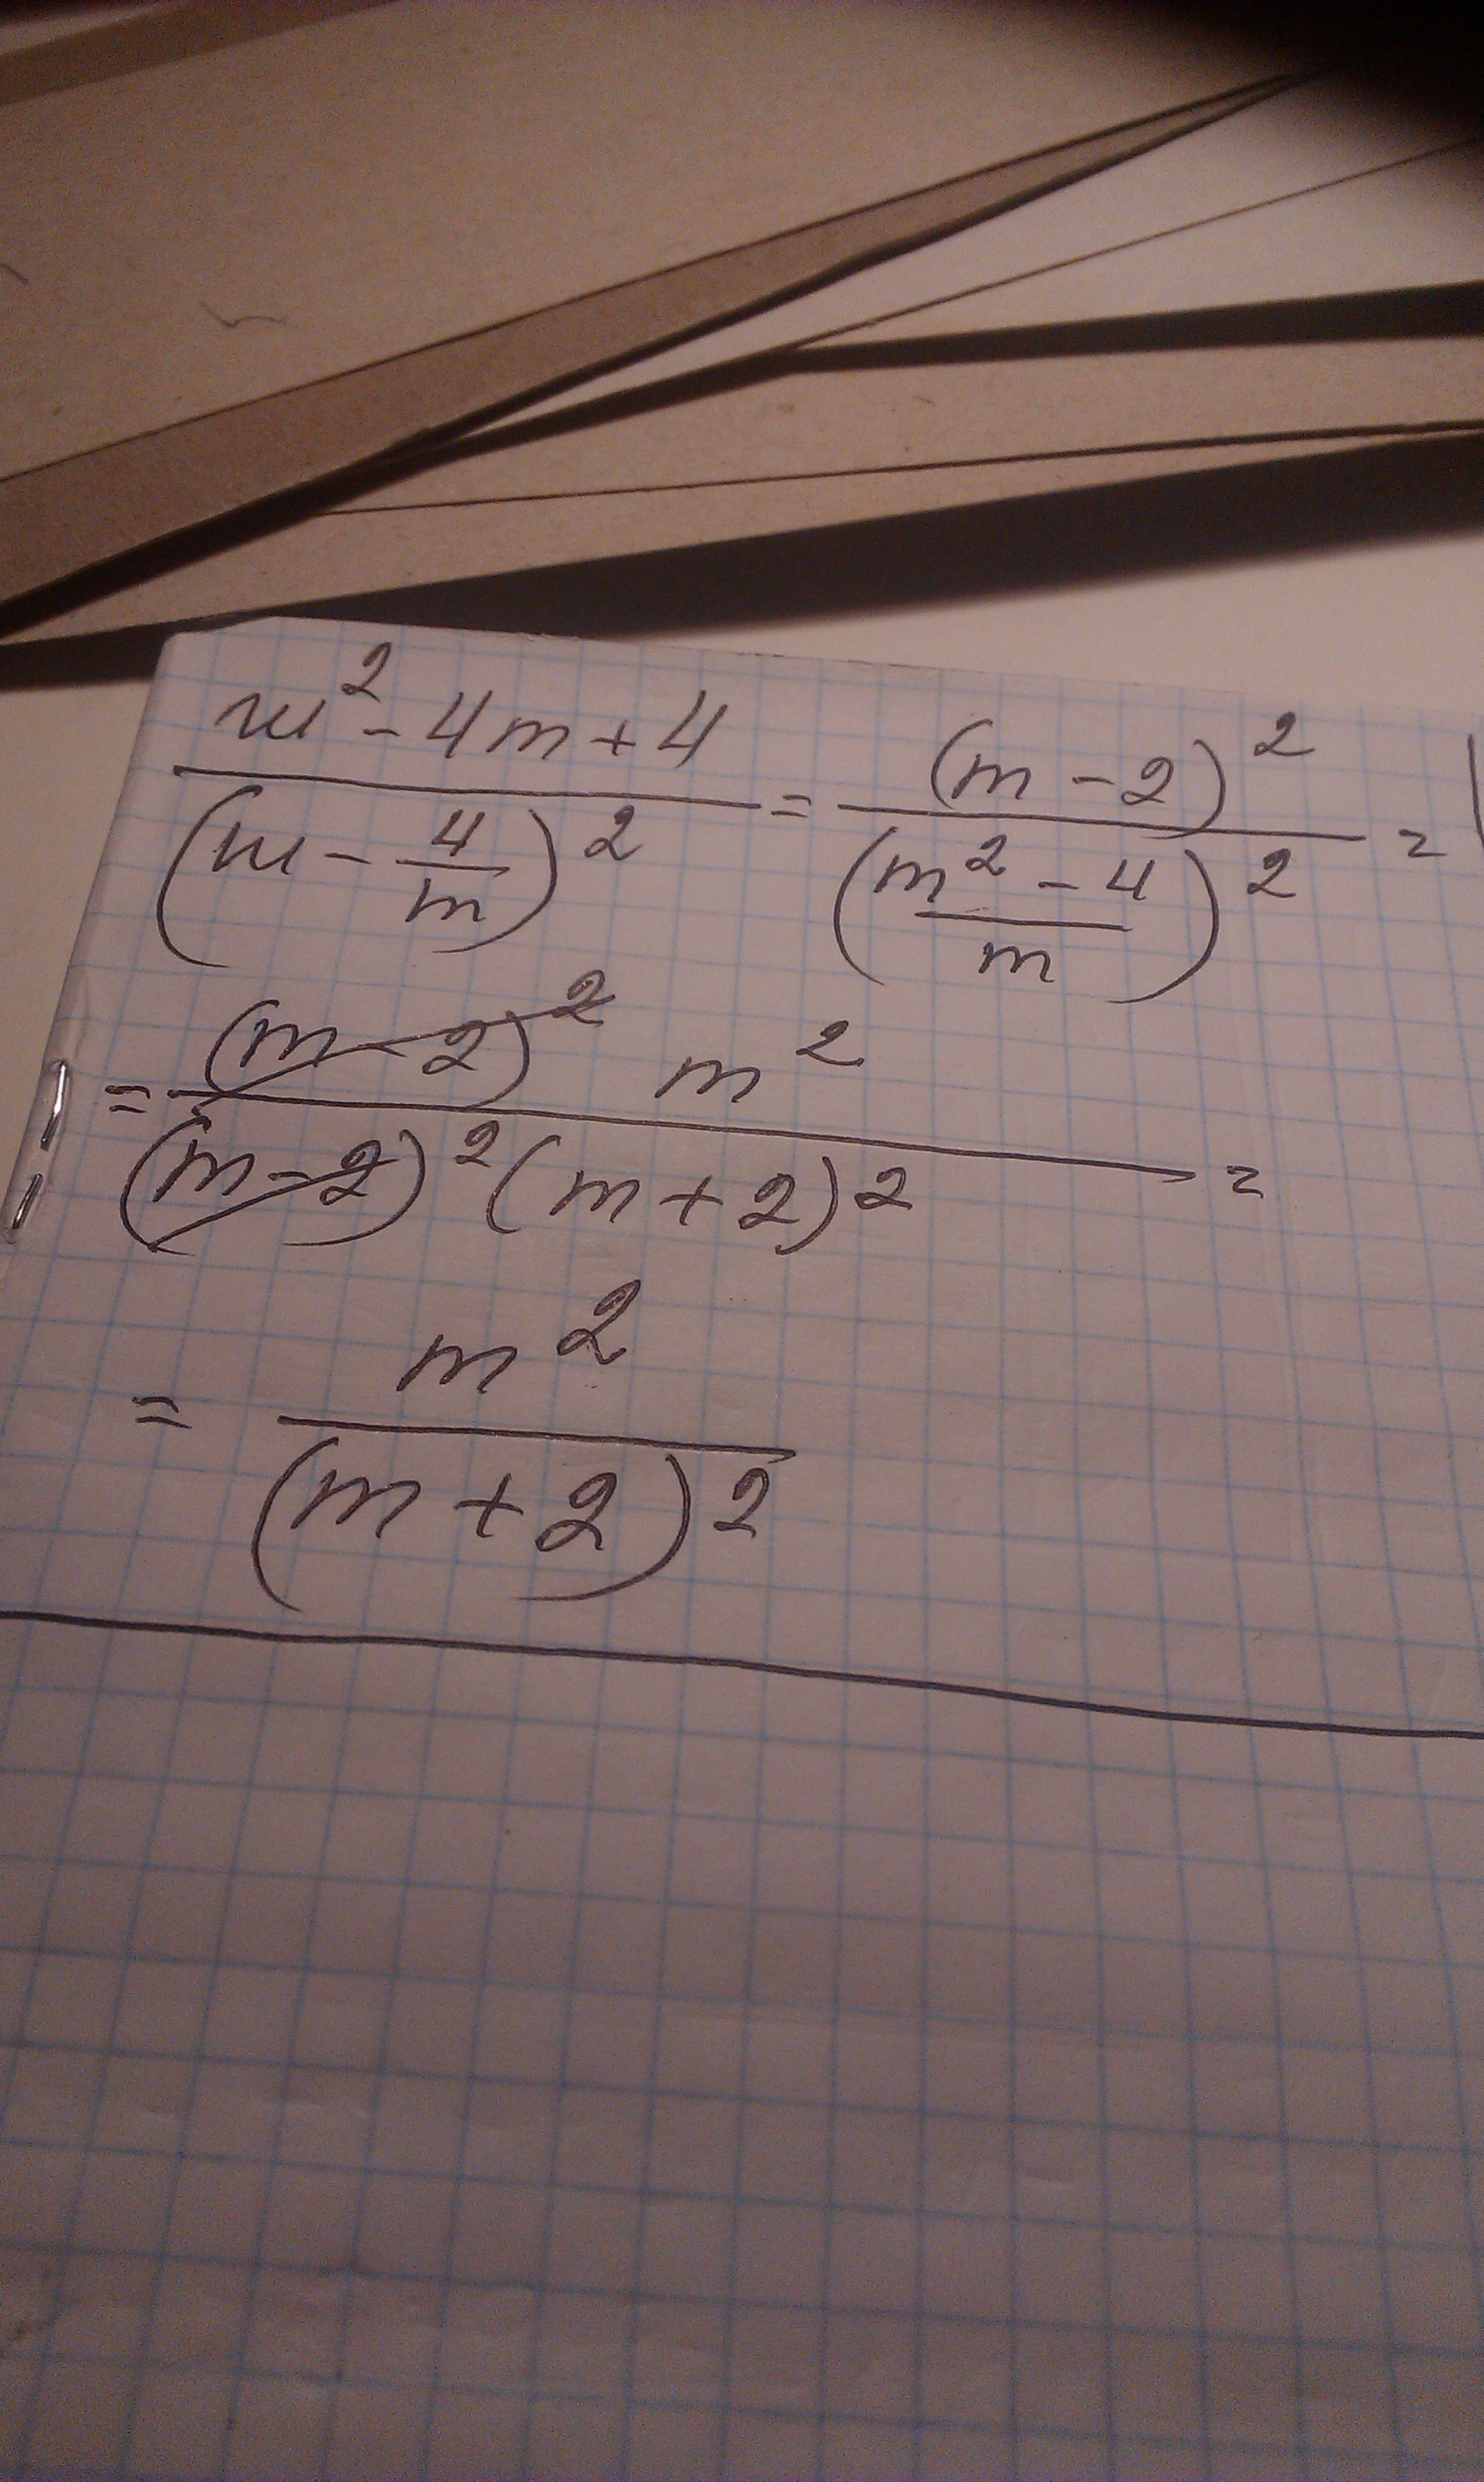 (m² - 4m + 4)/(m - 4/m)² = (m - 2)²/((m² - 4)/m)² =
= (m - 2)² m²/(m - 2)² (m + 2)² =
= m²/(m + 2)²